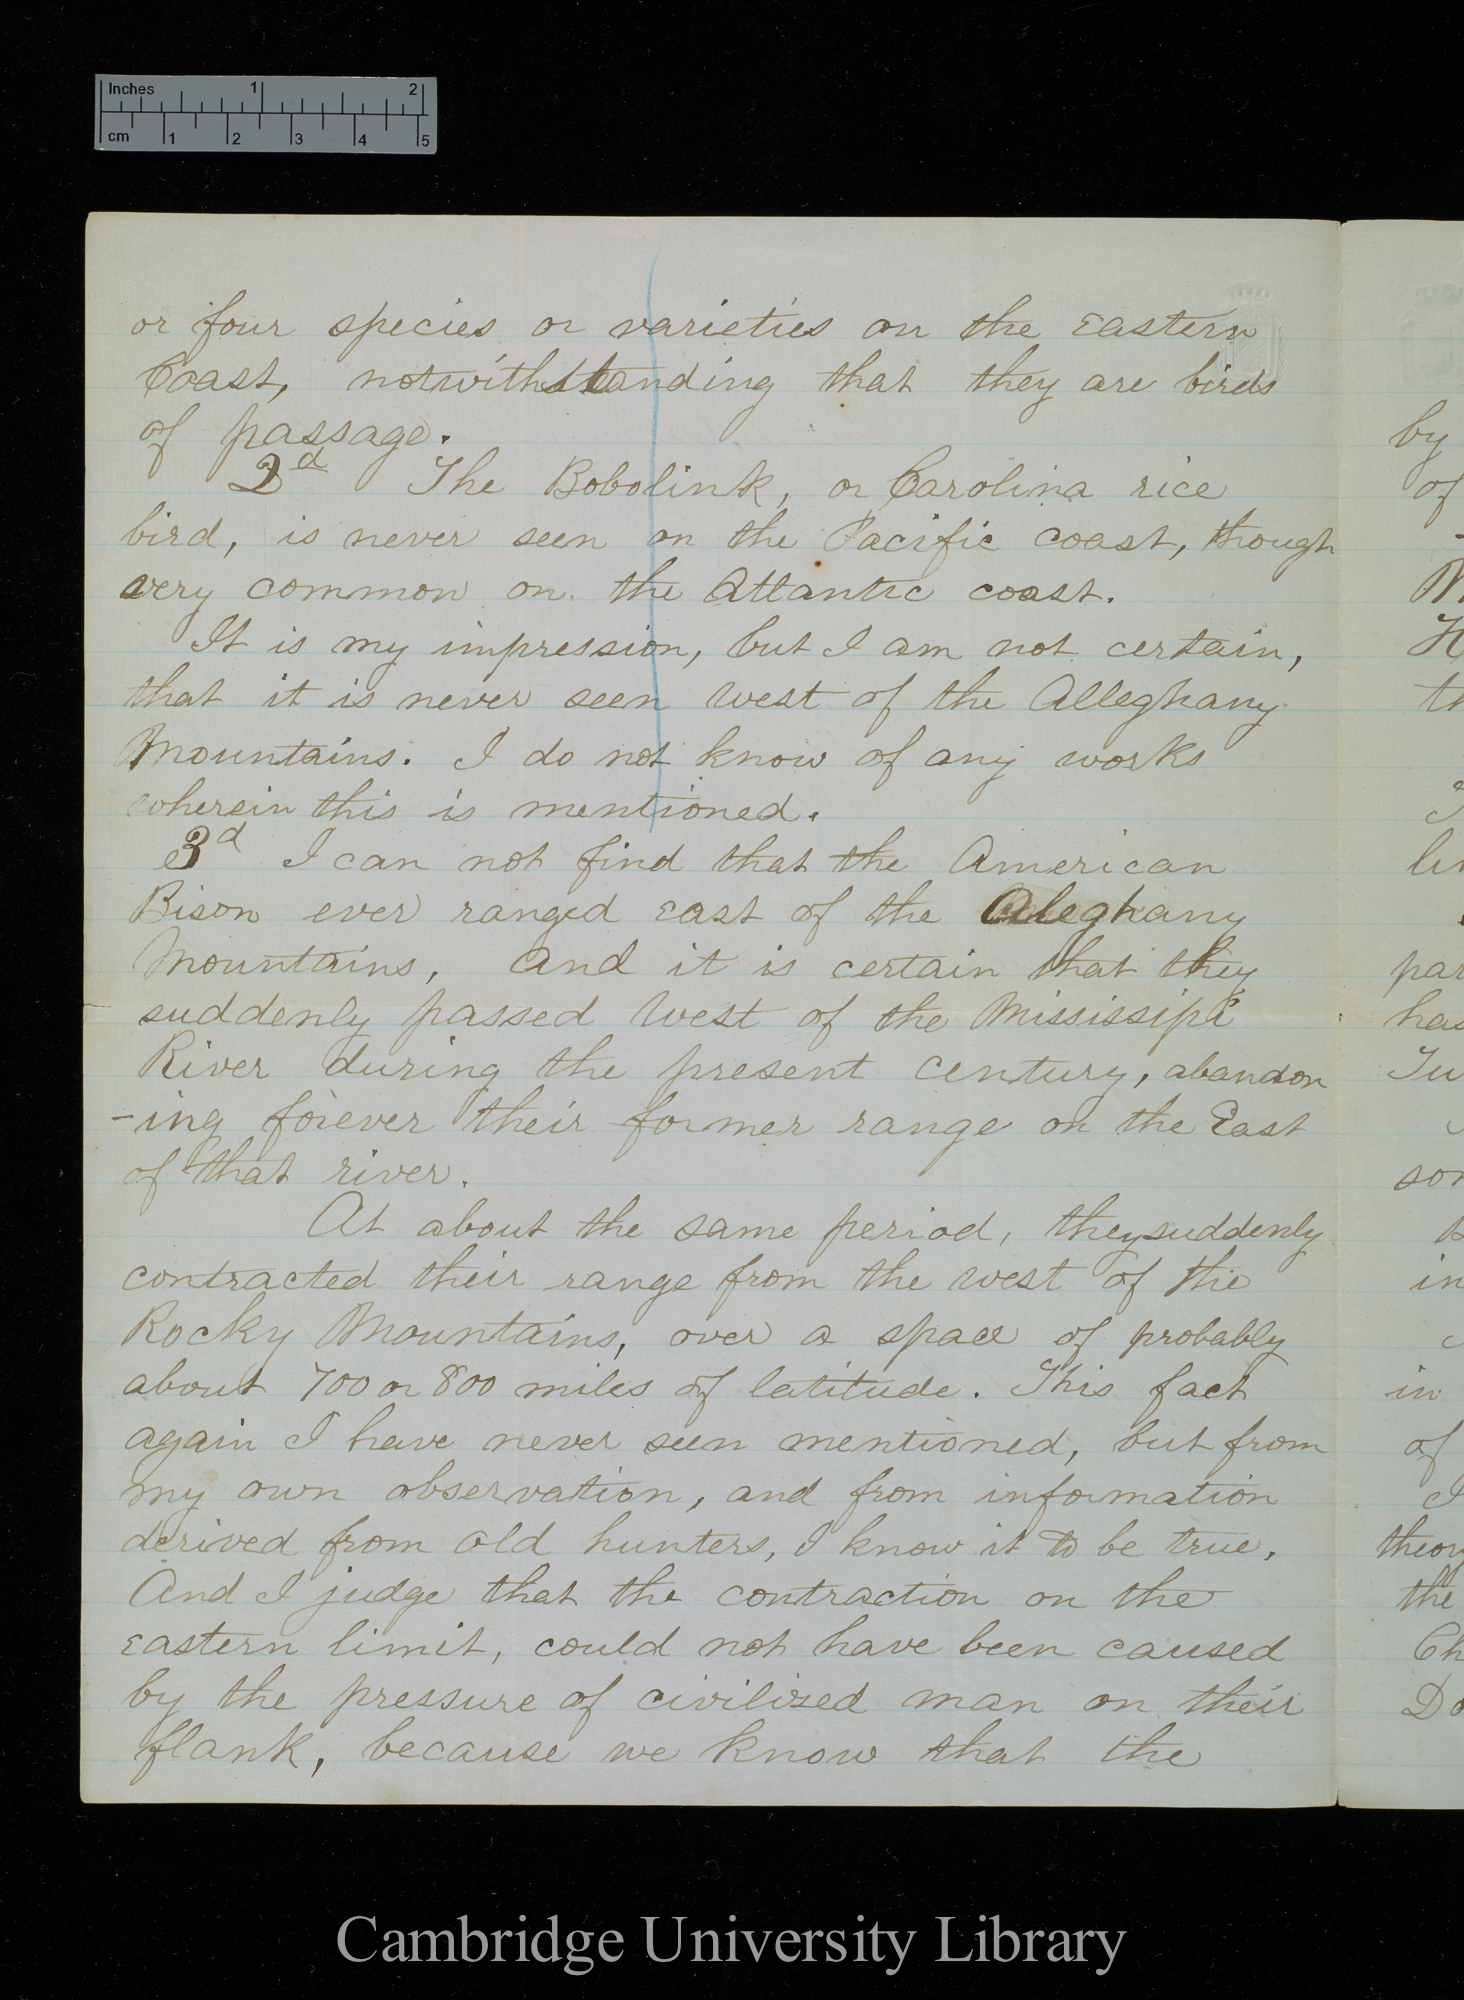 Inches 1 2
cm 1 2 3 4 5
or four species or varieties on the eastern
Coast, notwithstanding that they are birds
of passage.
2d The Bobolink, or Carolina rice
bird, is never seen on the Pacific coast, though
very common on the Atlantic coast.
It is my impression, but I am not certain,
that it is never seen west of the Alleghany
Mountains. I do not know of any works
wherein this is mentioned.
3d I can not find that the American
Bison ever ranged east of the Aleghany
Mountains, and it is certain that they
suddenly passed west of the Mississipi
River during the present century, abandon
-ing forever their former range on the East
of that river.
At about the same period, they suddenly
contracted their range from the west of the
Rocky Mountains, over a space of probably
about 700 or 800 miles of latitude. This fact
again I have never seen mentioned, but from
my own observation, and from information
derived from old hunters, I know it to be true.
And I judge that the contraction on the
eastern limit, could not have been caused
by the pressure of civilized man on their
flank, because we know that the
by
of
in
of
the
Cambridge University Library